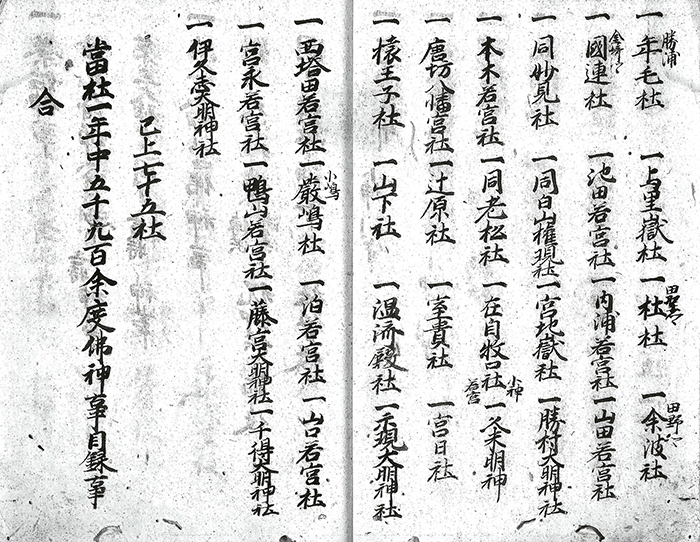 勝浦
一年毛社 一与里嶽社 田野 一杜社 田野 一余波社
一國連社 一池田若宮社 一内浦若宮社 一山田若宮社
一同妙見社 一同白山権現社 一宮地嶽社 一勝村大明神社
一本木若宮社 一同老松社 一在自牧口社 小神 若宮
一唐坊八幡宮社 一辻原社 一室貴社 一宮日社
一猿王子社 一山下社 一温済殿社 一示現大明神社
一西塔田若宮社 小嶋 一嚴嶋社 一泊若宮社 一山口若宮社
一宮永若宮社 一鴨山若宮社 一藤宮大明神社 一千得大明神社
一伊久志大明神社
已上七十五社
當社一年中五千九百余度佛神事目録事
合